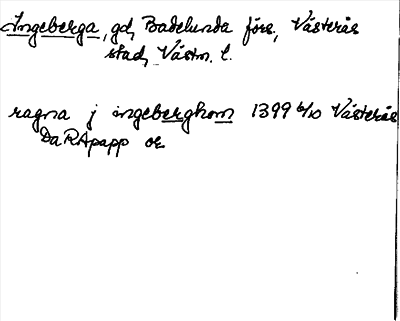 Ingeberga, gd, Badelunda förs., Västerås
stad, Västm. l.
ragna j ingeberghom 1399 6/10 Västerås
Da RApapp or.